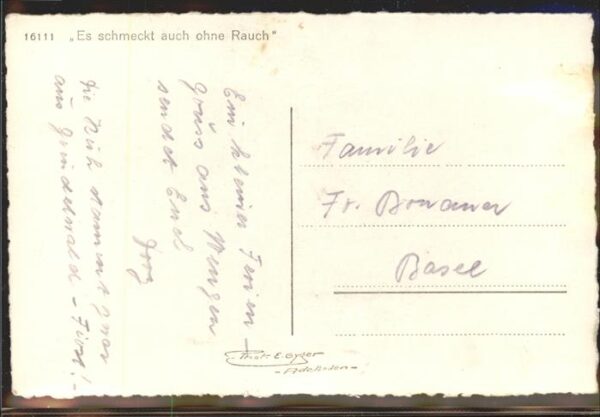 16111 „Es schmeckt auch ohne Rauch"
Ein kleiner Ferien-
grüss aus Wengen
sendet Euch
Die Kuh stammt zwar
aus Grindelwald - First! -
Familie
Fr. Bonauer
Basel
Phot. E. Gyger
- Adelboden -